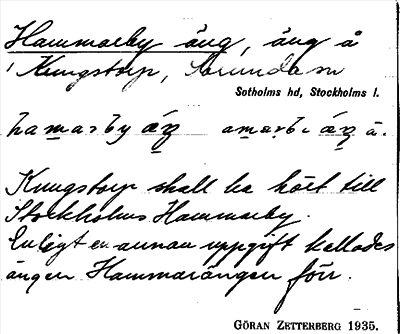 Hammarby äng, äng å
Kungstorp, Sorunda sn
Sotholms hd, Stockholms l.
hamarby äŋ amarbi äŋ å.
Kungstorp skall ha hört till
Stockholms Hammarby.
Enligt en annan uppgift kallades
ängen Hammarängen förr.
GÖRAN ZETTERBERG 1935.